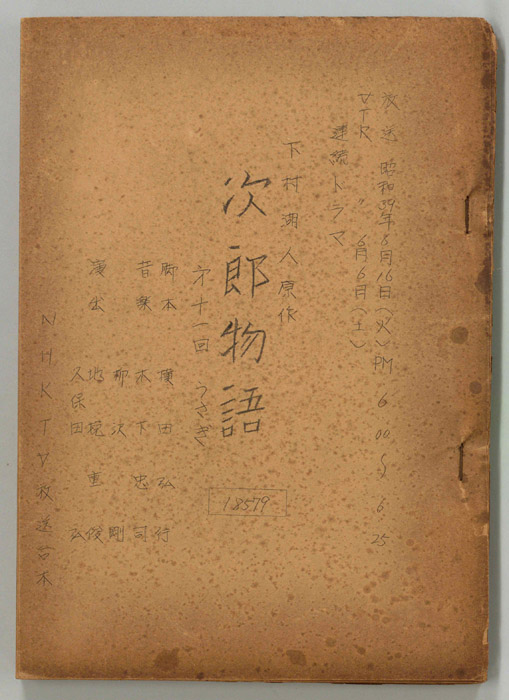 放送 昭和39年6月16日(火)PM 6.00.~6.25
VTR 〃 6月6日(土)
連続トラマ
下村湖人原作
次郎物語
才十一回 うさぎ
18579
脚本 横田弘行
音楽 木下忠司
那次剛
演出 地挽重俊
久保田玄
NHKTV放送台本